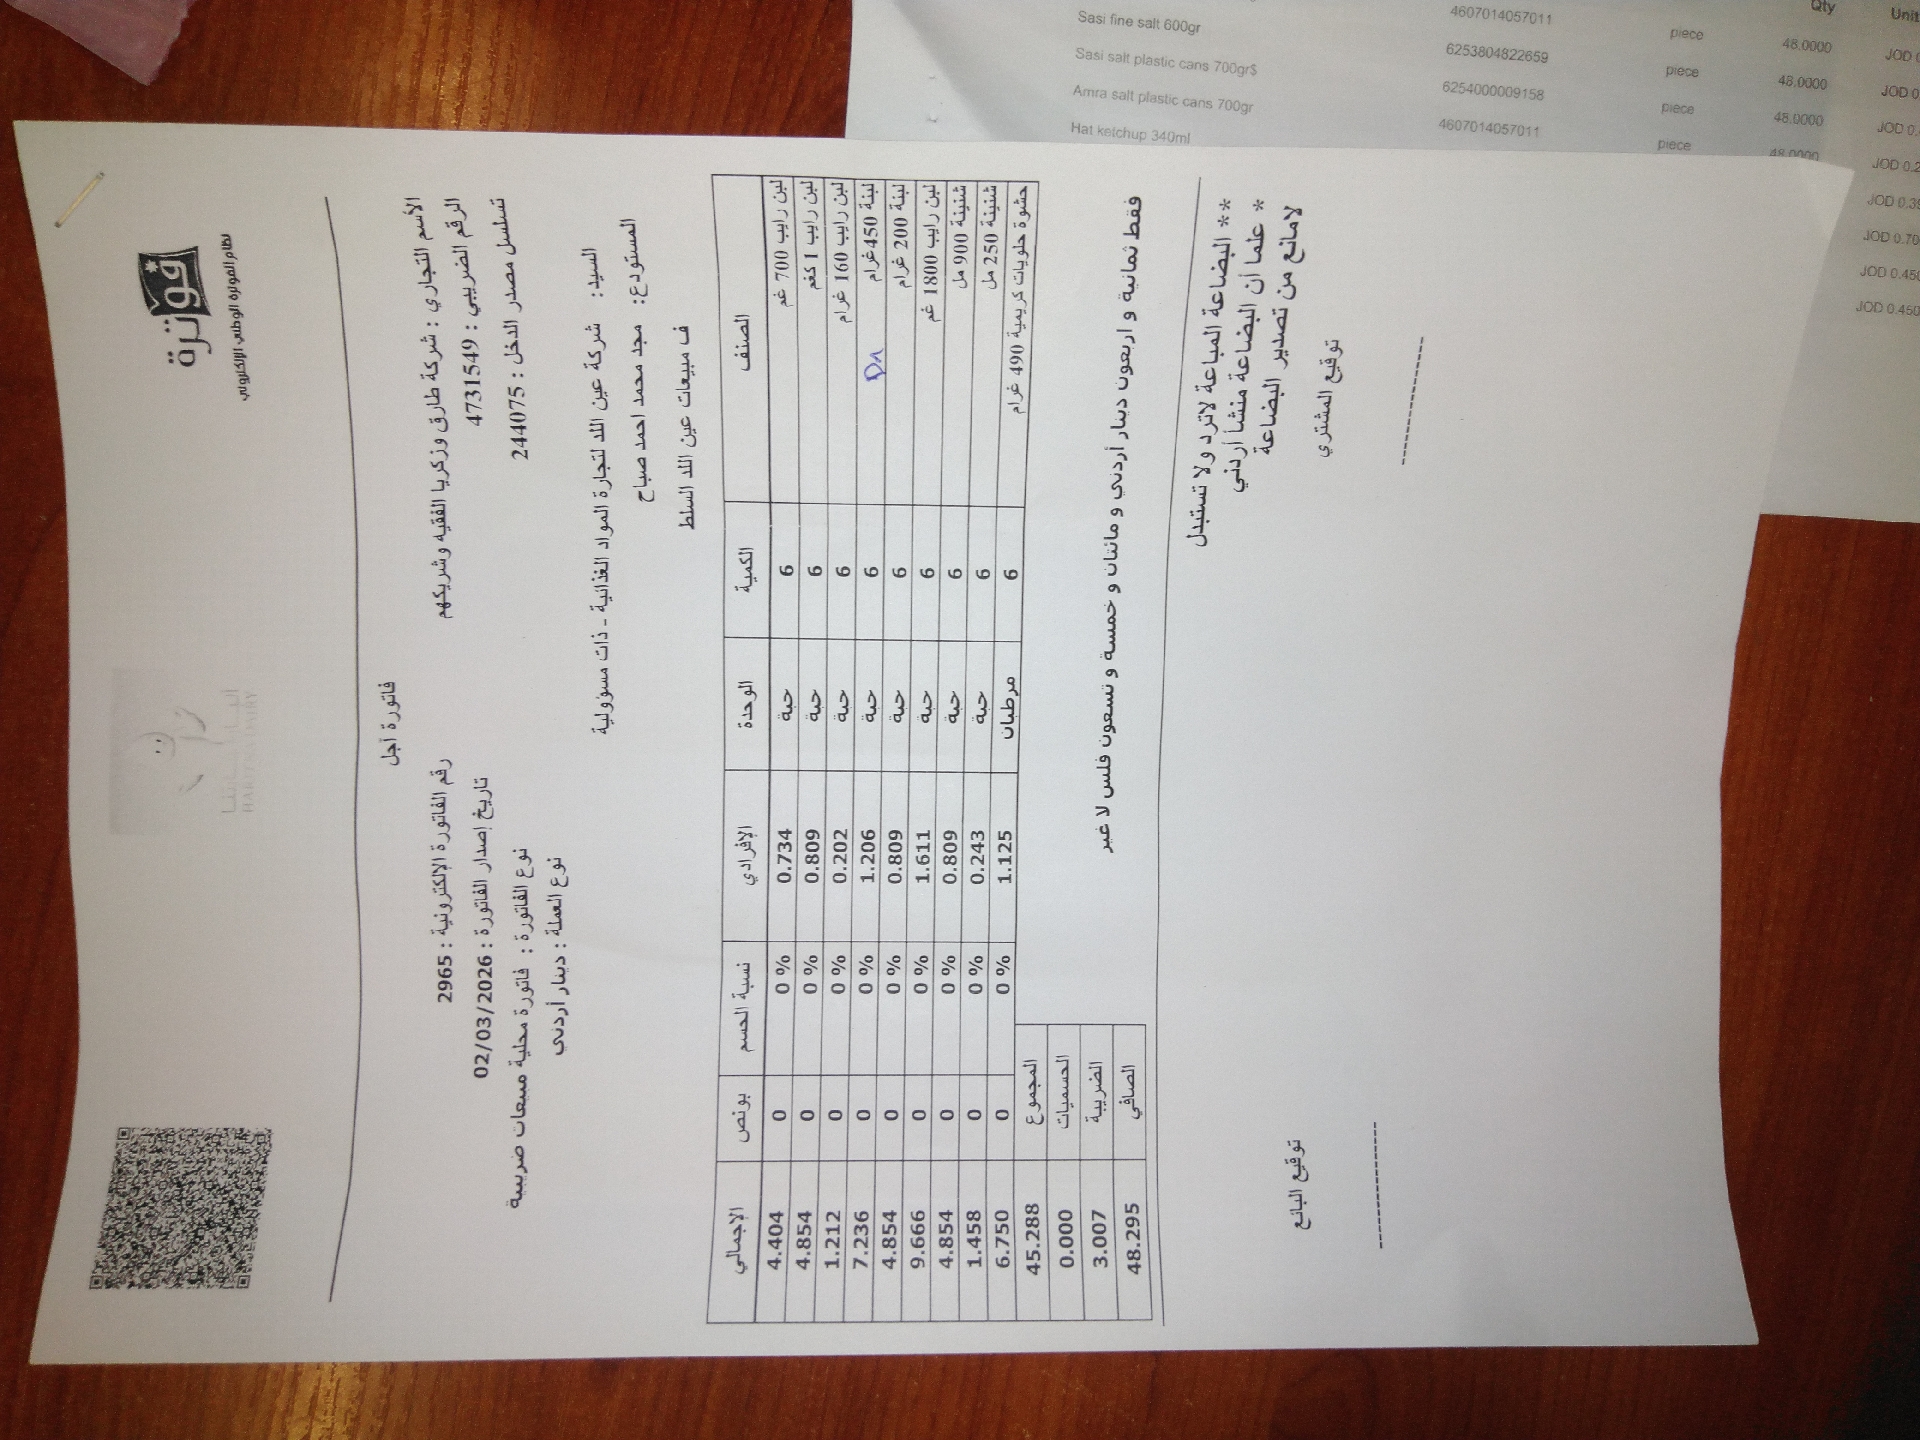 فوترة
نظام الفوترة الوطني الإلكتروني
HARETNA DAIRY
فاتورة آجل
الأسم التجاري : شركة طارق وزكريا الفقيه وشريكهم
رقم الفاتورة الإلكترونية : 2965
الرقم الضريبي : 4731549
تاريخ إصدار الفاتورة : 02/03/2026
تسلسل مصدر الدخل : 244075
نوع الفاتورة : فاتورة محلية مبيعات ضريبية
نوع العملة : دينار أردني
السيد: شركة عين اللد لتجارة المواد الغذائية - ذات مسؤولية
المستودع: مجد محمد احمد صباح
ف مبيعات عين اللد السلط
الصنف الكمية الوحدة الإفرادي نسبة الحسم بونص الإجمالي
لبن رايب 700 غم 6 حبة 0.734 0 % 0 4.404
لبن رايب 1 كغم 6 حبة 0.809 0 % 0 4.854
لبن رايب 160 غرام 6 حبة 0.202 0 % 0 1.212
لبنة 450غرام 6 حبة 1.206 0 % 0 7.236
لبنة 200 غرام 6 حبة 0.809 0 % 0 4.854
لبن رايب 1800 غم 6 حبة 1.611 0 % 0 9.666
شنينة 900 مل 6 حبة 0.809 0 % 0 4.854
شنينة 250 مل 6 حبة 0.243 0 % 0 1.458
حشوة حلويات كريمية 490 غرام 6 مرطبان 1.125 0 % 0 6.750
المجموع 45.288
الحسميات 0.000
الضريبة 3.007
الصافي 48.295
فقط ثمانية و اربعون دينار أردني و مائتان و خمسة و تسعون فلس لا غير
** البضاعة المباعة لاترد ولا تستبدل
* علما أن البضاعة منشأ أردني
لامانع من تصدير البضاعة
توقيع المشتري
توقيع البائع
Qty Unit
Sasi fine salt 600gr 4607014057011 piece 48.0000
Sasi salt plastic cans 700gr$ 6253804822659 piece 48.0000
Amra salt plastic cans 700gr 6254000009158 piece 48.0000
Hat ketchup 340ml 4607014057011 piece 48.0000
JOD 0.70
JOD 0.450
JOD 0.450